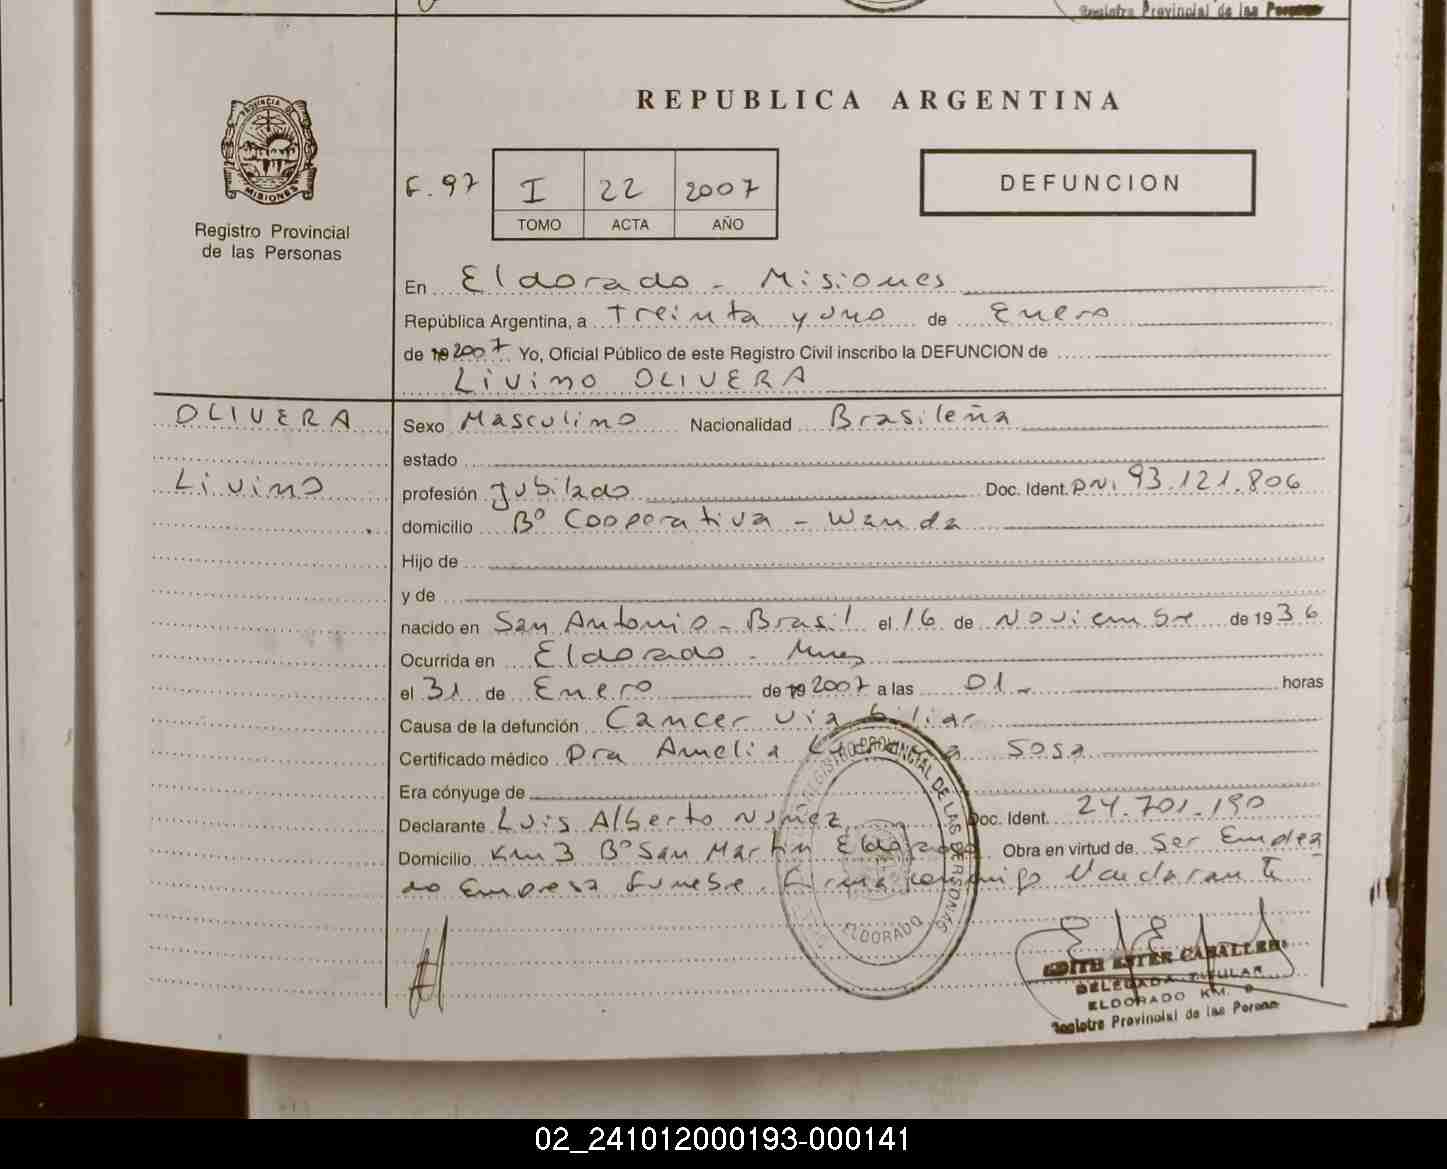 Registro Provincial de las Personas
PROVINCIA DE
MISIONES
Registro Provincial
de las Personas
REPUBLICA ARGENTINA
F. 97
I 22 2007
TOMO ACTA AÑO
DEFUNCION
En Eldorado - Misiones
República Argentina, a Treinta y uno de Enero
de 19 2007 Yo, Oficial Público de este Registro Civil inscribo la DEFUNCION de
Livino OLIVERA
OLIVERA
Livino
Sexo Masculino Nacionalidad Brasileña
estado
profesión Jubilado Doc. Ident. DNI 93.121.806
domicilio Bº Cooperativa - Wanda
Hijo de
y de
nacido en San Antonio - Brasil el 16 de Noviembre de 1936
Ocurrida en Eldorado - Mnes
el 31 de Enero de 19 2007 a las 01 - horas
Causa de la defunción Cancer via biliar
Certificado médico Dra Amelia Sosa
Era cónyuge de
Declarante Luis Alberto Nuñez Doc. Ident. 24.701.190
Domicilio Km 3 Bº San Martin Eldorado Obra en virtud de Ser Emplea
do Empresa Funebre. Firma conmigo el declarante
REGISTRO PROVINCIAL DE LAS PERSONAS
ELDORADO
EDITH ESTER CABALLERO
DELEGADA TITULAR
ELDORADO KM. 9
Registro Provincial de las Personas
02_241012000193-000141